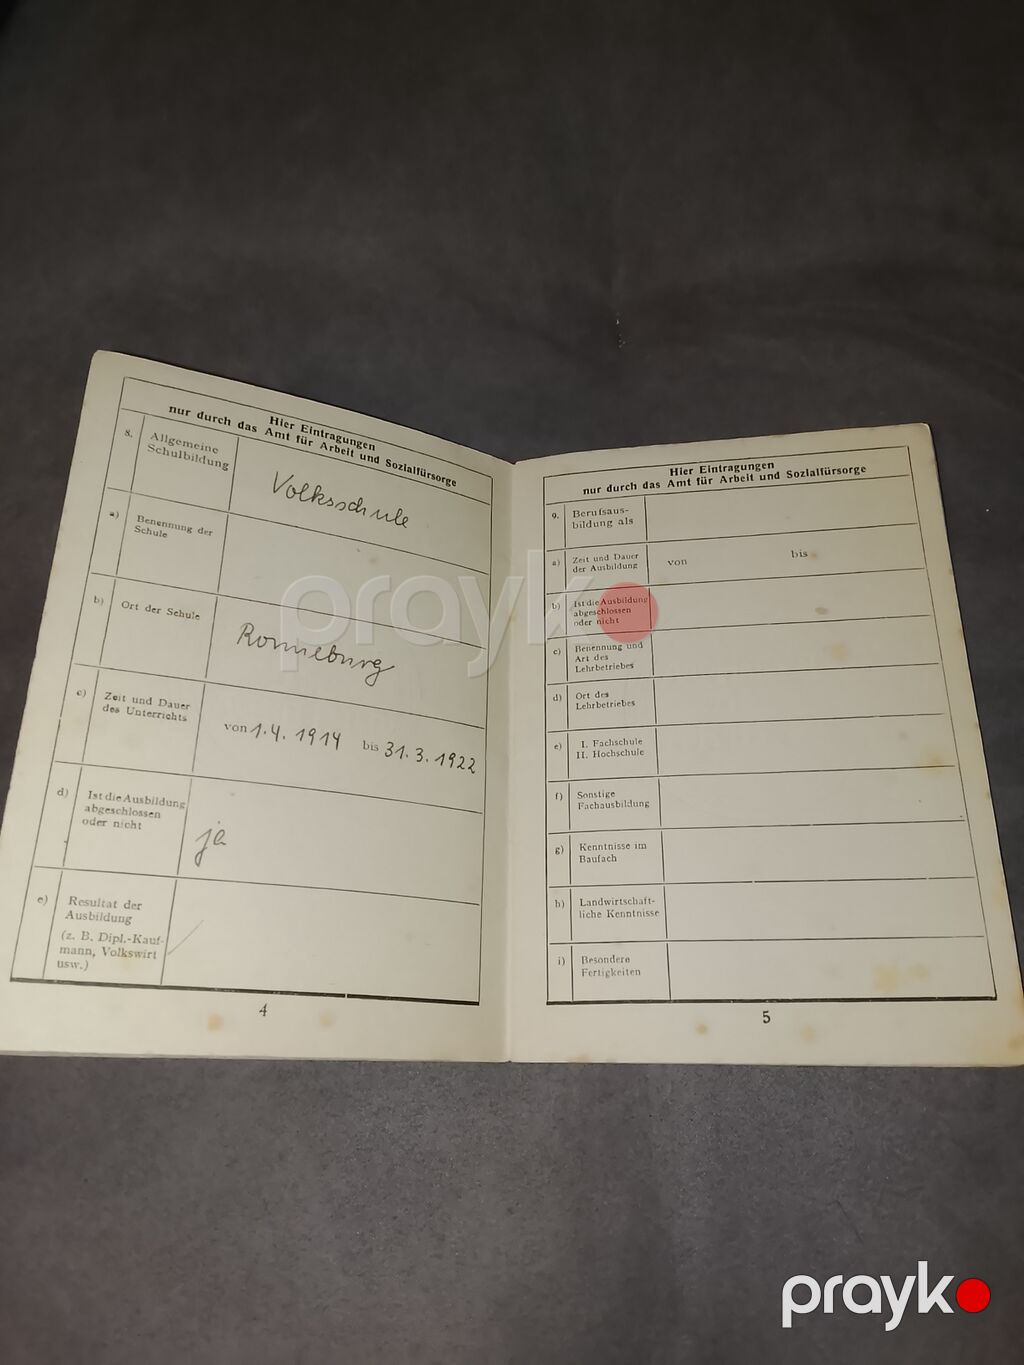 Hier Eintragungen
nur durch das Amt für Arbeit und Sozialfürsorge
8. Allgemeine
Schulbildung
Volksschule
a) Benennung der
Schule
b) Ort der Schule
Ronneburg
c) Zeit und Dauer
des Unterrichts
von 1.4.1914 bis 31.3.1922
d) Ist die Ausbildung
abgeschlossen
oder nicht
ja
e) Resultat der
Ausbildung
(z. B. Dipl.-Kauf-
mann, Volkswirt
usw.)
4
Hier Eintragungen
nur durch das Amt für Arbeit und Sozialfürsorge
9. Berufsaus-
bildung als
a) Zeit und Dauer
der Ausbildung
von bis
b) Ist die Ausbildung
abgeschlossen
oder nicht
c) Benennung und
Art des
Lehrbetriebes
d) Ort des
Lehrbetriebes
e) I. Fachschule
II. Hochschule
f) Sonstige
Fachausbildung
g) Kenntnisse im
Baufach
h) Landwirtschaft-
liche Kenntnisse
i) Besondere
Fertigkeiten
5
prayk
prayk